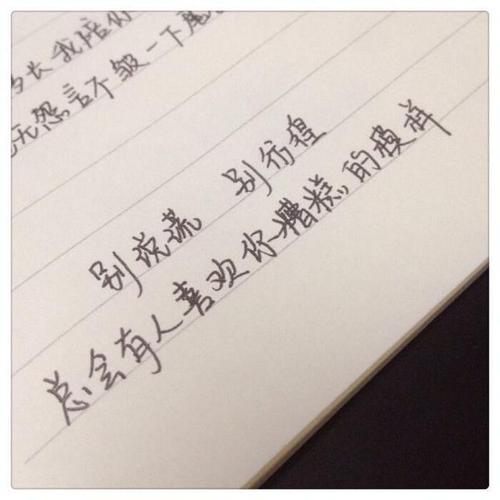 长我陪你
无怨言不皱一下眉
别说谎 别彷徨
总会有人喜欢你糟糕的模样